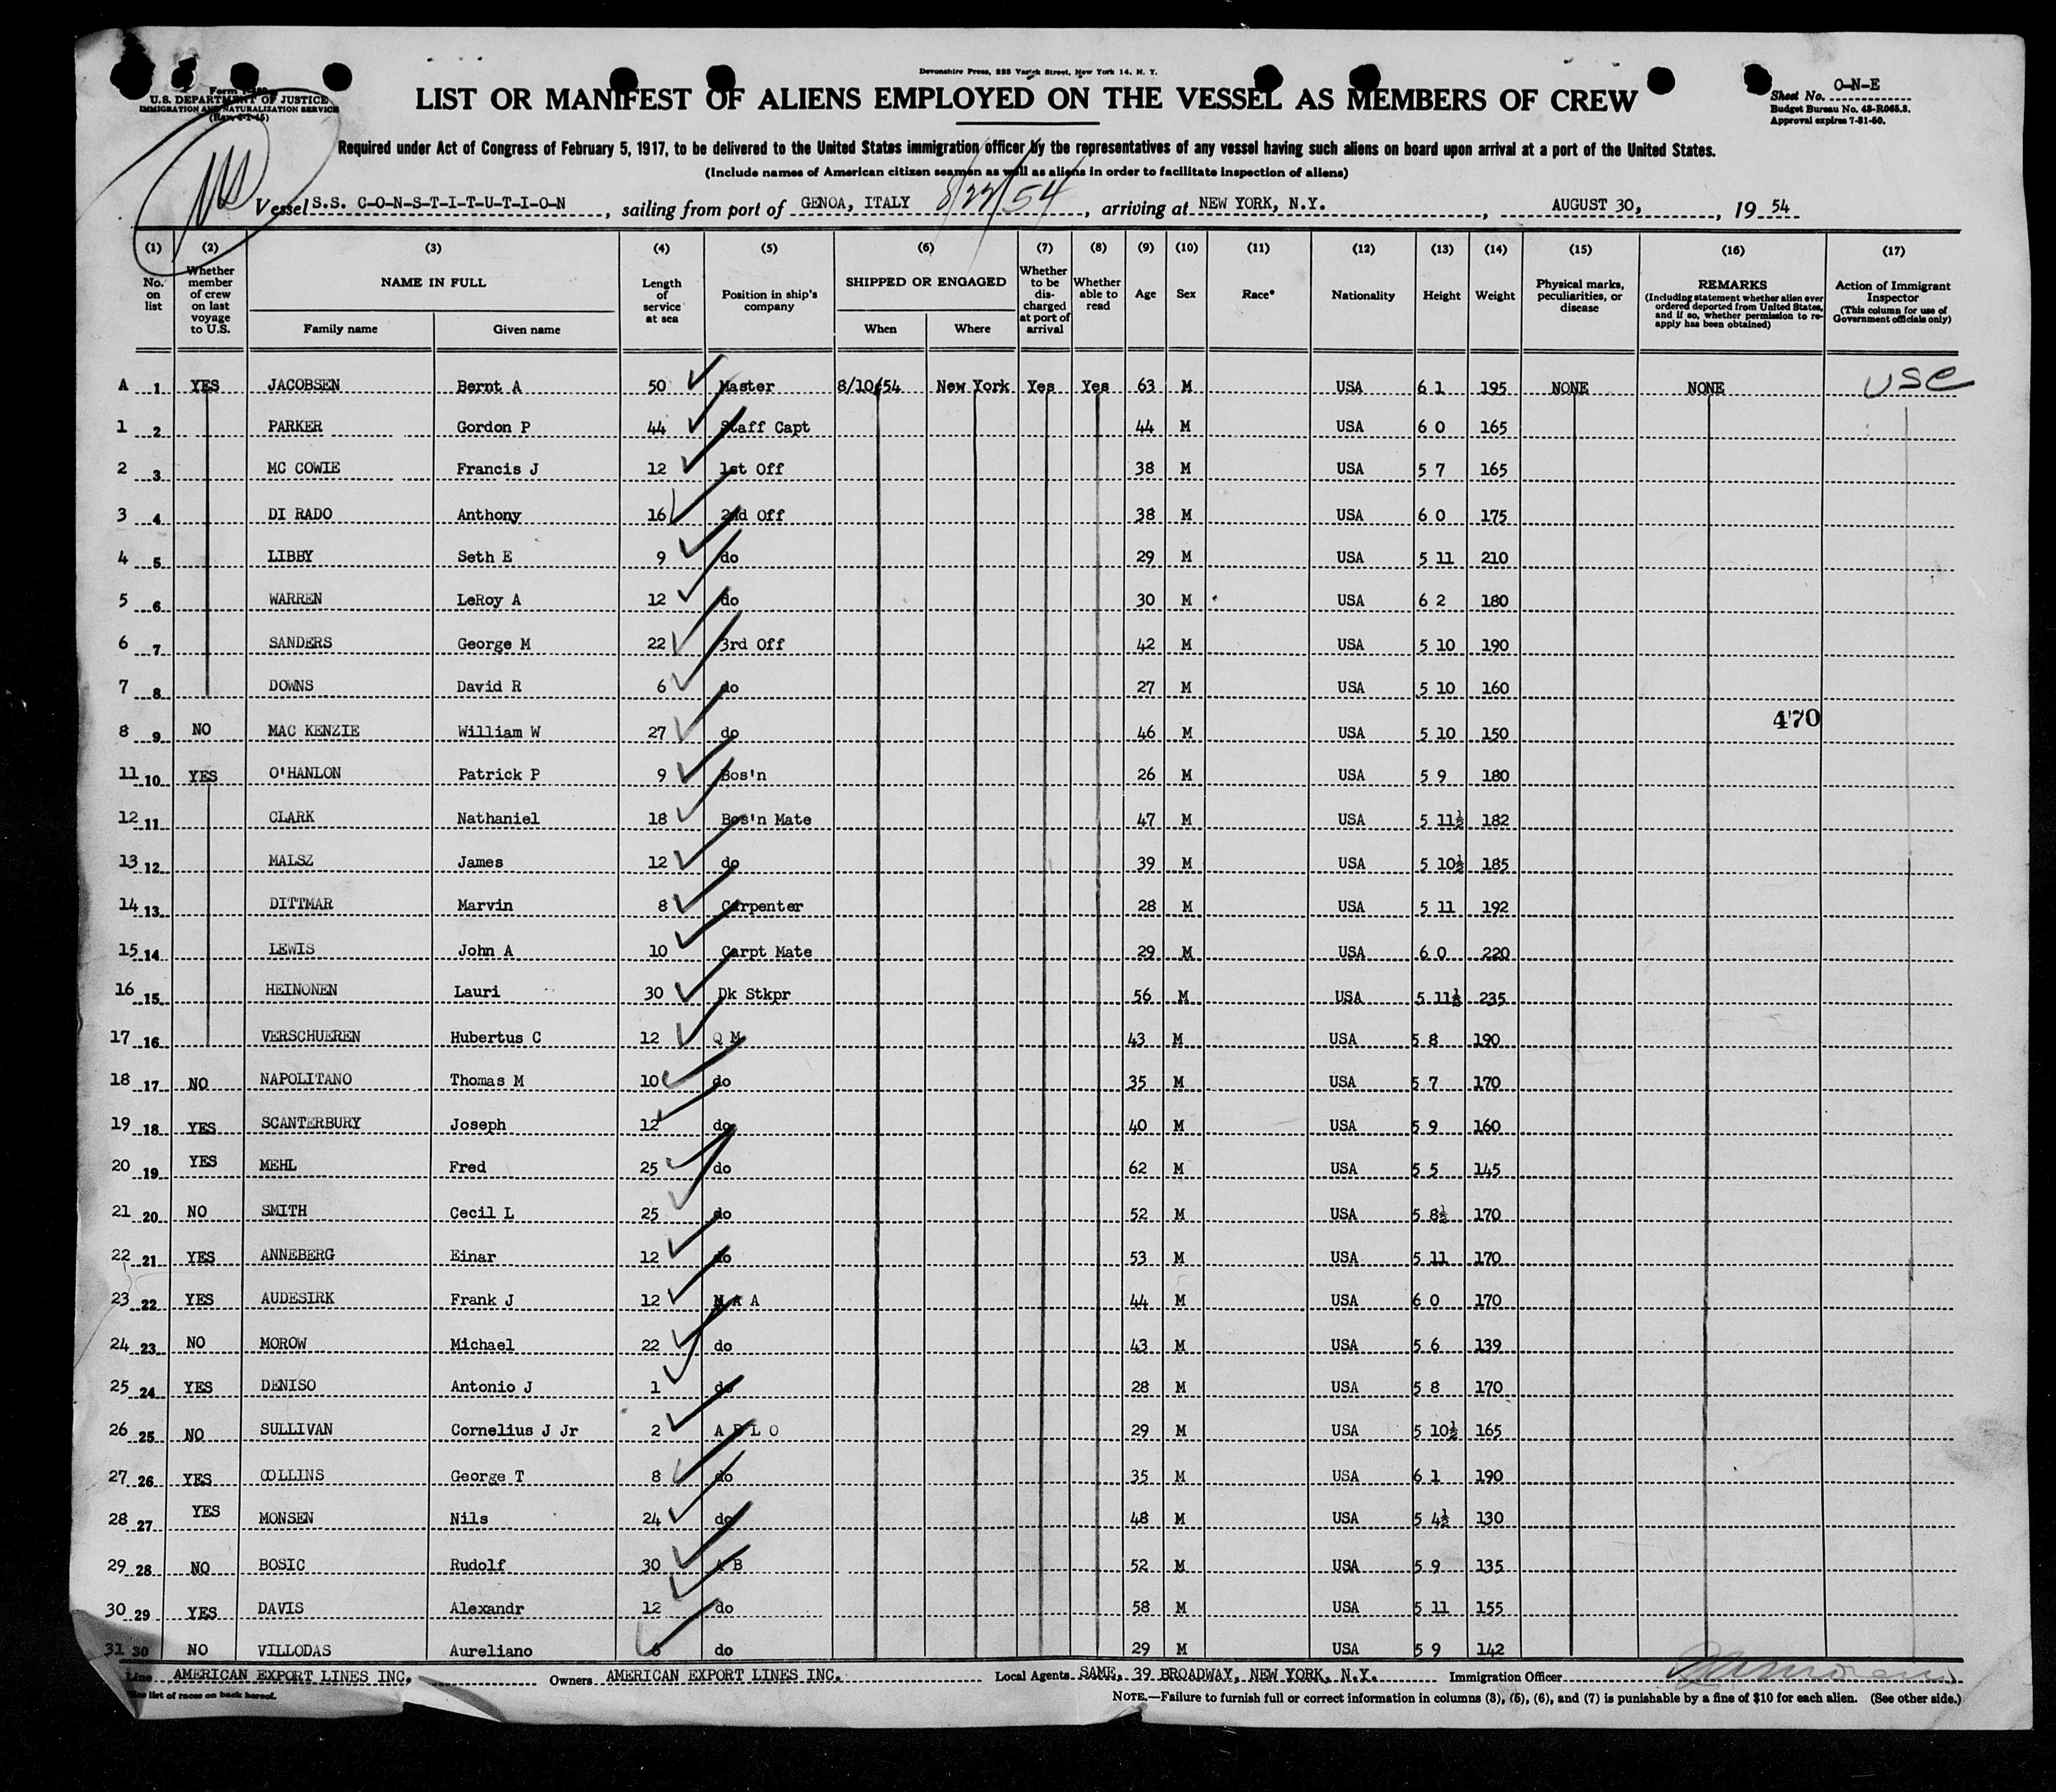 Devonshire Press, 225 Varick Street, New York 14, N. Y.
U.S. DEPARTMENT OF JUSTICE
IMMIGRATION AND NATURALIZATION SERVICE
LIST OR MANIFEST OF ALIENS EMPLOYED ON THE VESSEL AS MEMBERS OF CREW
Sheet No. O-N-E
Budget Bureau No. 43-R065.3.
Approval expires 7-31-50.
Required under Act of Congress of February 5, 1917, to be delivered to the United States immigration officer by the representatives of any vessel having such aliens on board upon arrival at a port of the United States.
(Include names of American citizen seamen as well as aliens in order to facilitate inspection of aliens)
Vessel S.S. C-O-N-S-T-I-T-U-T-I-O-N, sailing from port of GENOA, ITALY 8/22/54, arriving at NEW YORK, N.Y., AUGUST 30, 19 54
(1) (2) (3) (4) (5) (6) (7) (8) (9) (10) (11) (12) (13) (14) (15) (16) (17)
No. on list
Whether member of crew on last voyage to U.S.
NAME IN FULL
Family name Given name
Length of service at sea
Position in ship's company
SHIPPED OR ENGAGED
When Where
Whether to be discharged at port of arrival
Whether able to read
Age Sex Race* Nationality Height Weight
Physical marks, peculiarities, or disease
REMARKS
(Including statement whether alien ever ordered deported from United States, and if so, whether permission to reapply has been obtained)
Action of Immigrant Inspector
(This column for use of Government officials only)
A 1 YES JACOBSEN Bernt A 50 Master 8/10/54 New York Yes Yes 63 M USA 6 1 195 NONE NONE USC
1 2 PARKER Gordon P 44 Staff Capt 44 M USA 6 0 165
2 3 MC COWIE Francis J 12 1st Off 38 M USA 5 7 165
3 4 DI RADO Anthony 16 2nd Off 38 M USA 6 0 175
4 5 LIBBY Seth E 9 do 29 M USA 5 11 210
5 6 WARREN LeRoy A 12 do 30 M USA 6 2 180
6 7 SANDERS George M 22 3rd Off 42 M USA 5 10 190
7 8 DOWNS David R 6 do 27 M USA 5 10 160
470
8 9 NO MAC KENZIE William W 27 do 46 M USA 5 10 150
11 10 YES O'HANLON Patrick P 9 Bos'n 26 M USA 5 9 180
12 11 CLARK Nathaniel 18 Bos'n Mate 47 M USA 5 11½ 182
13 12 MALSZ James 12 do 39 M USA 5 10½ 185
14 13 DITTMAR Marvin 8 Carpenter 28 M USA 5 11 192
15 14 LEWIS John A 10 Carpt Mate 29 M USA 6 0 220
16 15 HEINONEN Lauri 30 Dk Stkpr 56 M USA 5 11½ 235
17 16 VERSCHUEREN Hubertus C 12 Q M 43 M USA 5 8 190
18 17 NO NAPOLITANO Thomas M 10 do 35 M USA 5 7 170
19 18 YES SCANTERBURY Joseph 12 do 40 M USA 5 9 160
20 19 YES MEHL Fred 25 do 62 M USA 5 5 145
21 20 NO SMITH Cecil L 25 do 52 M USA 5 8½ 170
22 21 YES ANNEBERG Einar 12 do 53 M USA 5 11 170
23 22 YES AUDESIRK Frank J 12 M A A 44 M USA 6 0 170
24 23 NO MOROW Michael 22 do 43 M USA 5 6 139
25 24 YES DENISO Antonio J 1 do 28 M USA 5 8 170
26 25 NO SULLIVAN Cornelius J Jr 2 A B L O 29 M USA 5 10½ 165
27 26 YES COLLINS George T 8 do 35 M USA 6 1 190
28 27 YES MONSEN Nils 24 do 48 M USA 5 4½ 130
29 28 NO BOSIC Rudolf 30 A B 52 M USA 5 9 135
30 29 YES DAVIS Alexandr 12 do 58 M USA 5 11 155
31 30 NO VILLODAS Aureliano 6 do 29 M USA 5 9 142
Line AMERICAN EXPORT LINES INC. Owners AMERICAN EXPORT LINES INC. Local Agents SAME, 39 BROADWAY, NEW YORK, N.Y. Immigration Officer
See list of races on back hereof.
NOTE.—Failure to furnish full or correct information in columns (3), (5), (6), and (7) is punishable by a fine of $10 for each alien. (See other side.)